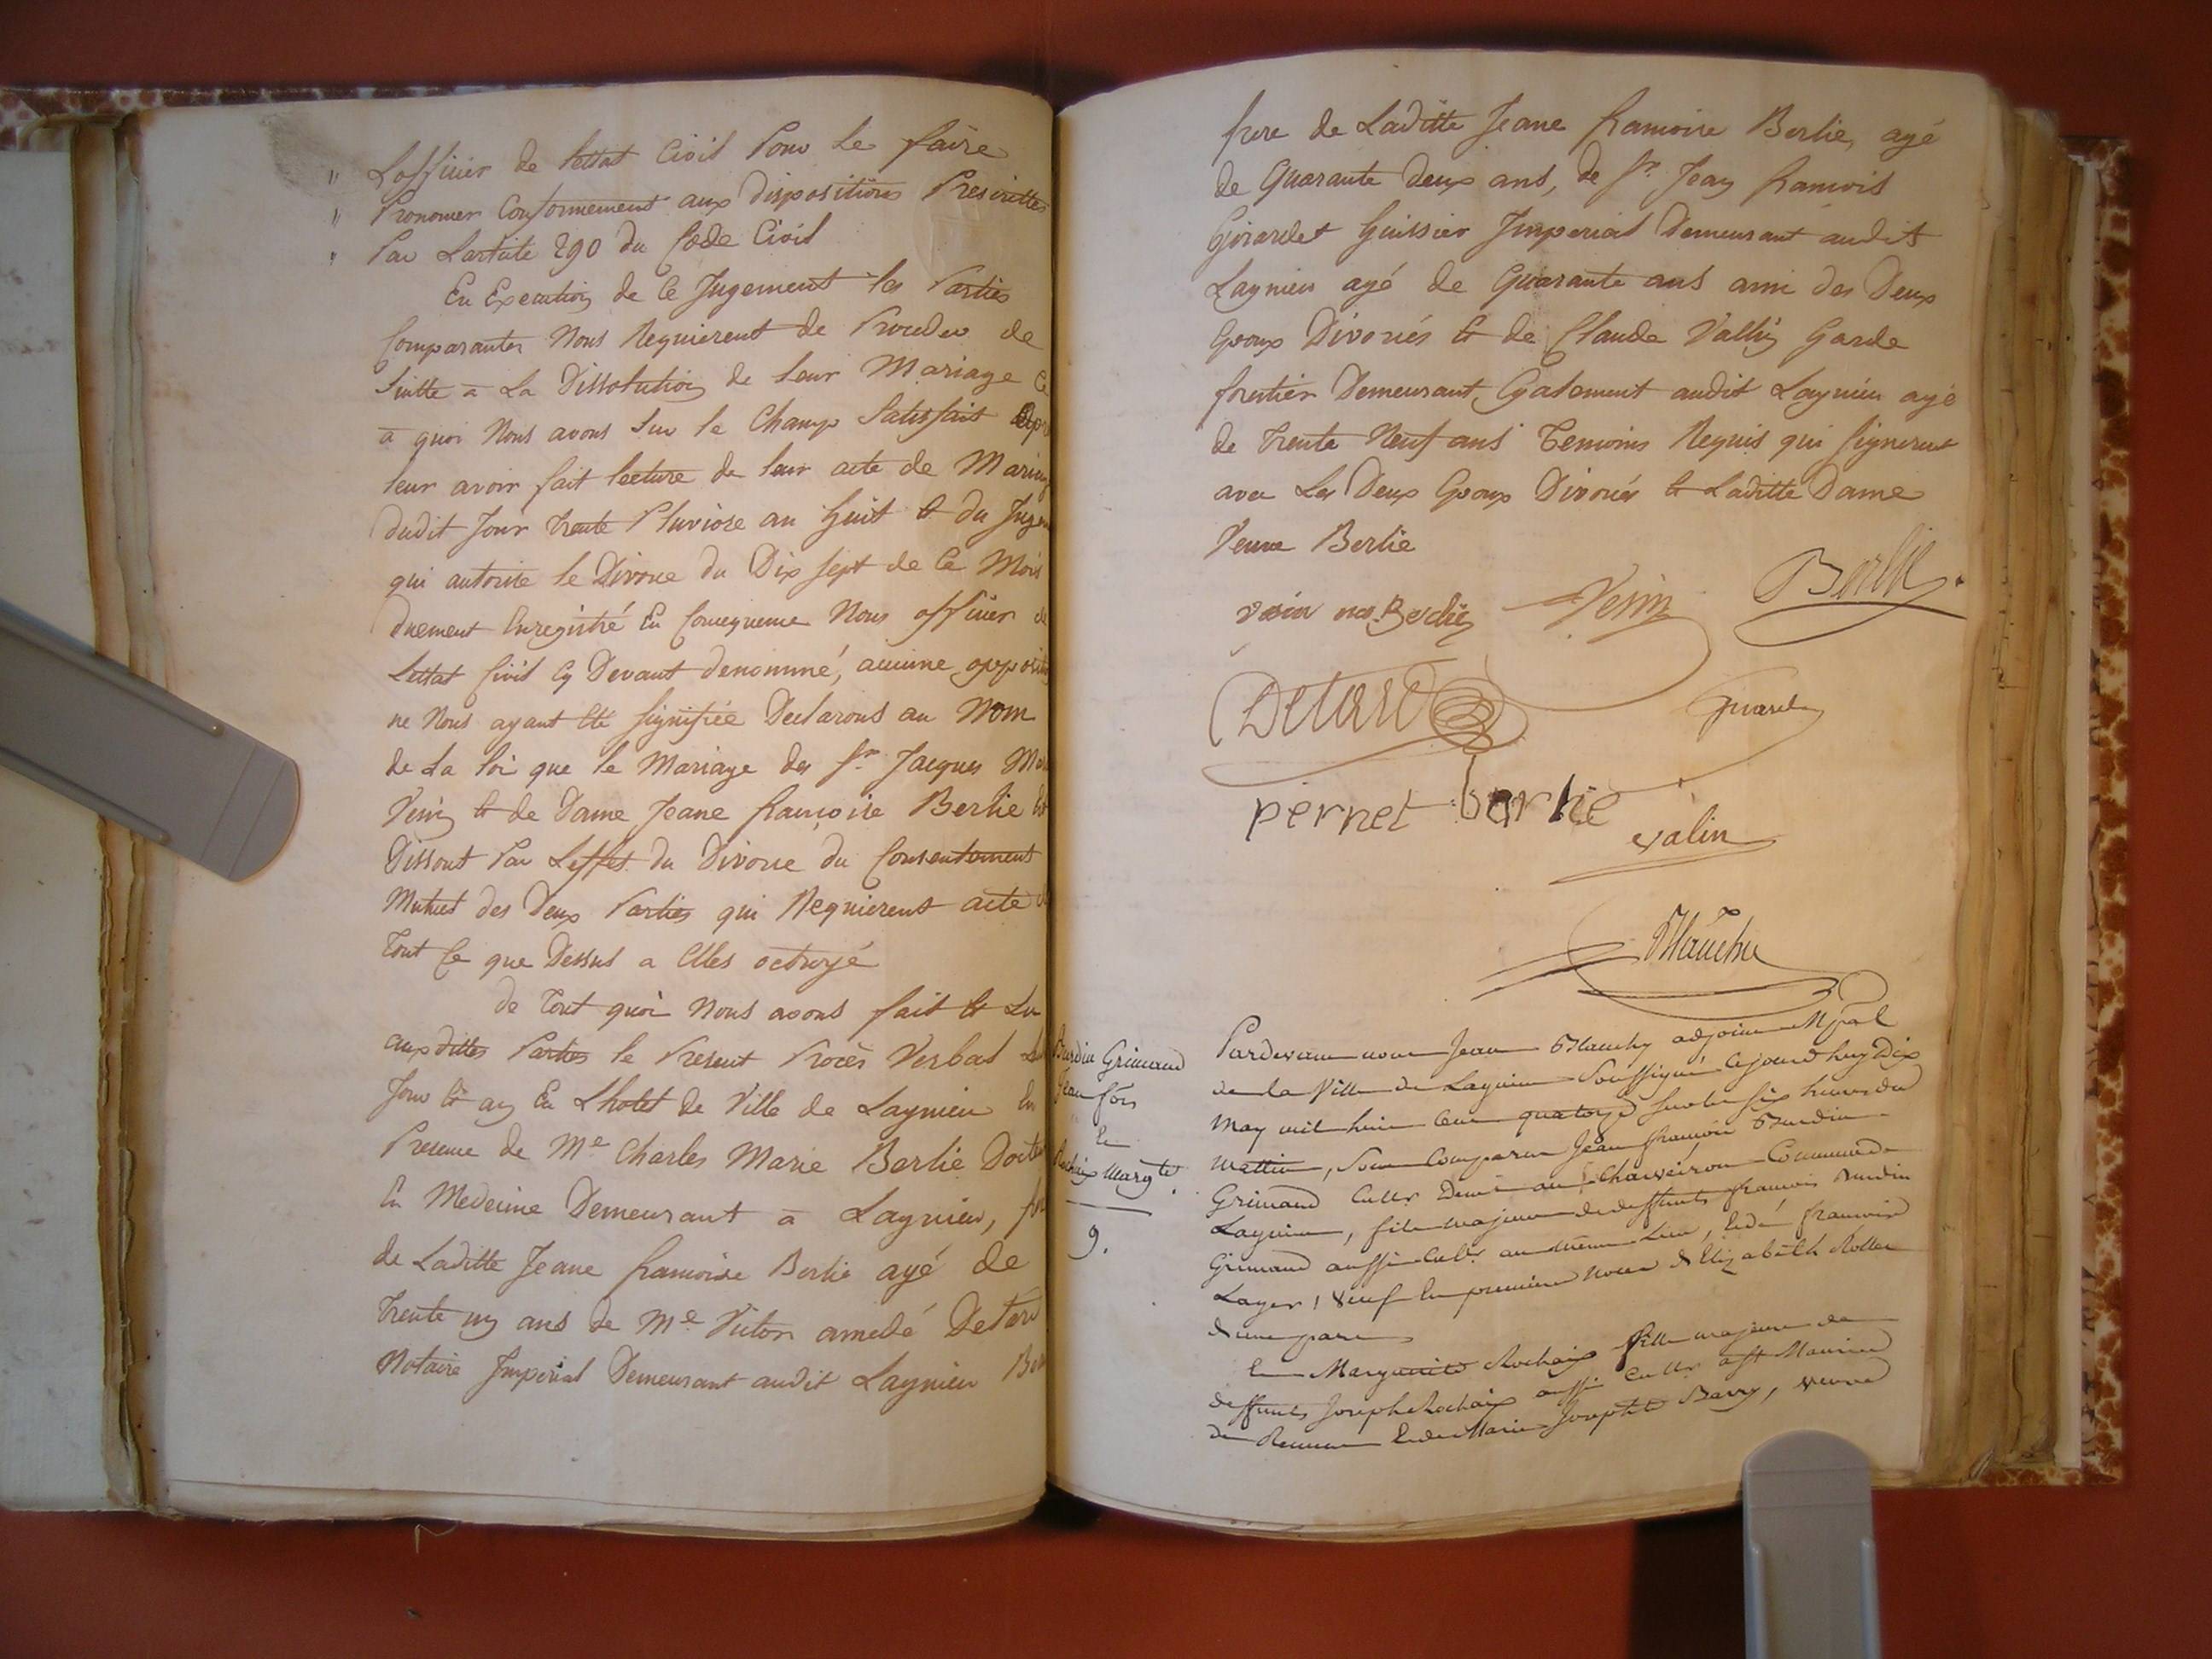 " Loffiuier de lettat Civil Pour Le faire
" Prononcer Conformement aux Dispositions Prescrittes
" Par Larticle 290 du Code Civil
En Execution de Ce Jugement les Parties
Comparantes Nous Requierent de Proceder de
Suitte a La Dissolution de leur Mariage Ce
a quoi Nous avons Sur le Champ Satisfait
leur avoir fait lecture de leur acte de Mariag
dudit Jour trente Pluviose an huit et du Jugem
qui autorise le Divorce du Dix Sept de Ce Mois
Duement Enregistré En Consequence Nous officier de
lettat Civil Cy Devant denommé, aucune oppositi
ne Nous ayant Eté Signifiée Declarons au Nom
de La loi que le Mariage des Sr. Jacques
Vesin et de Dame Jeane françoise Berlie
Dissout Par Leffet du Divorce du Consentement
Mutuel des Deux Parties qui Requierent acte
Tout Ce que Dessus a Elles octroyé
de tout quoi Nous avons fait et Lu
aux dittes Parties le Present Procès Verbal
Jour et an En Lhotel de Ville de Lagnieu En
Presence de Me Charles Marie Berlie Docteu
En Medecine Demeurant a Lagnieu,
de Laditte Jeane francoise Berlie agé de
trente un ans de Me Victor amedé Detard
Notaire Imperial Demeurant audit Lagnieu
frere de Laditte Jeane francoise Berlie, agé
de Quarante deux ans, de Sr. Jean francois
Girardet huissier Imperial Demeurant audit
Lagnieu agé de Quarante ans ami des Deux
Epoux Divorcés et de Claude Vallin Garde
forestier Demeurant Egalement audit Lagnieu agé
de trente Neuf ans Temoins Requis qui Signerent
avec Les Deux Epoux Divorcés et Laditte Dame
Veuve Berlie
Berlie Vesin Berlie
Detard Girardet
pernet berlie
valin
Blanchy
Burdin Grimaud
Jean fois
et
Rochaix Margte.
9.
Pardevant nous Jean Blanchy adjoint Mpal
de la Ville de Lagnieu Soussigné Cejourdhuy Dix
May mil huit Cent quatorze Sur les Six heures du
mattin, Sont Comparus Jean françois Burdin
Grimaud Cultr Demt au Charveiron Commune de
Lagnieu, fils majeur de deffunts francois Burdin
Grimaud aussi Cultr. au même Lieu, et de françoise
Layer, Veuf en première Noces d'Elizabeth Rollet
d'une part
Et Marguerite Rochaix fille majeure de
deffunts Joseph Rochaix aussi Cultr a St Maurice
de Remens et de Marie Josephte Barry, veuve